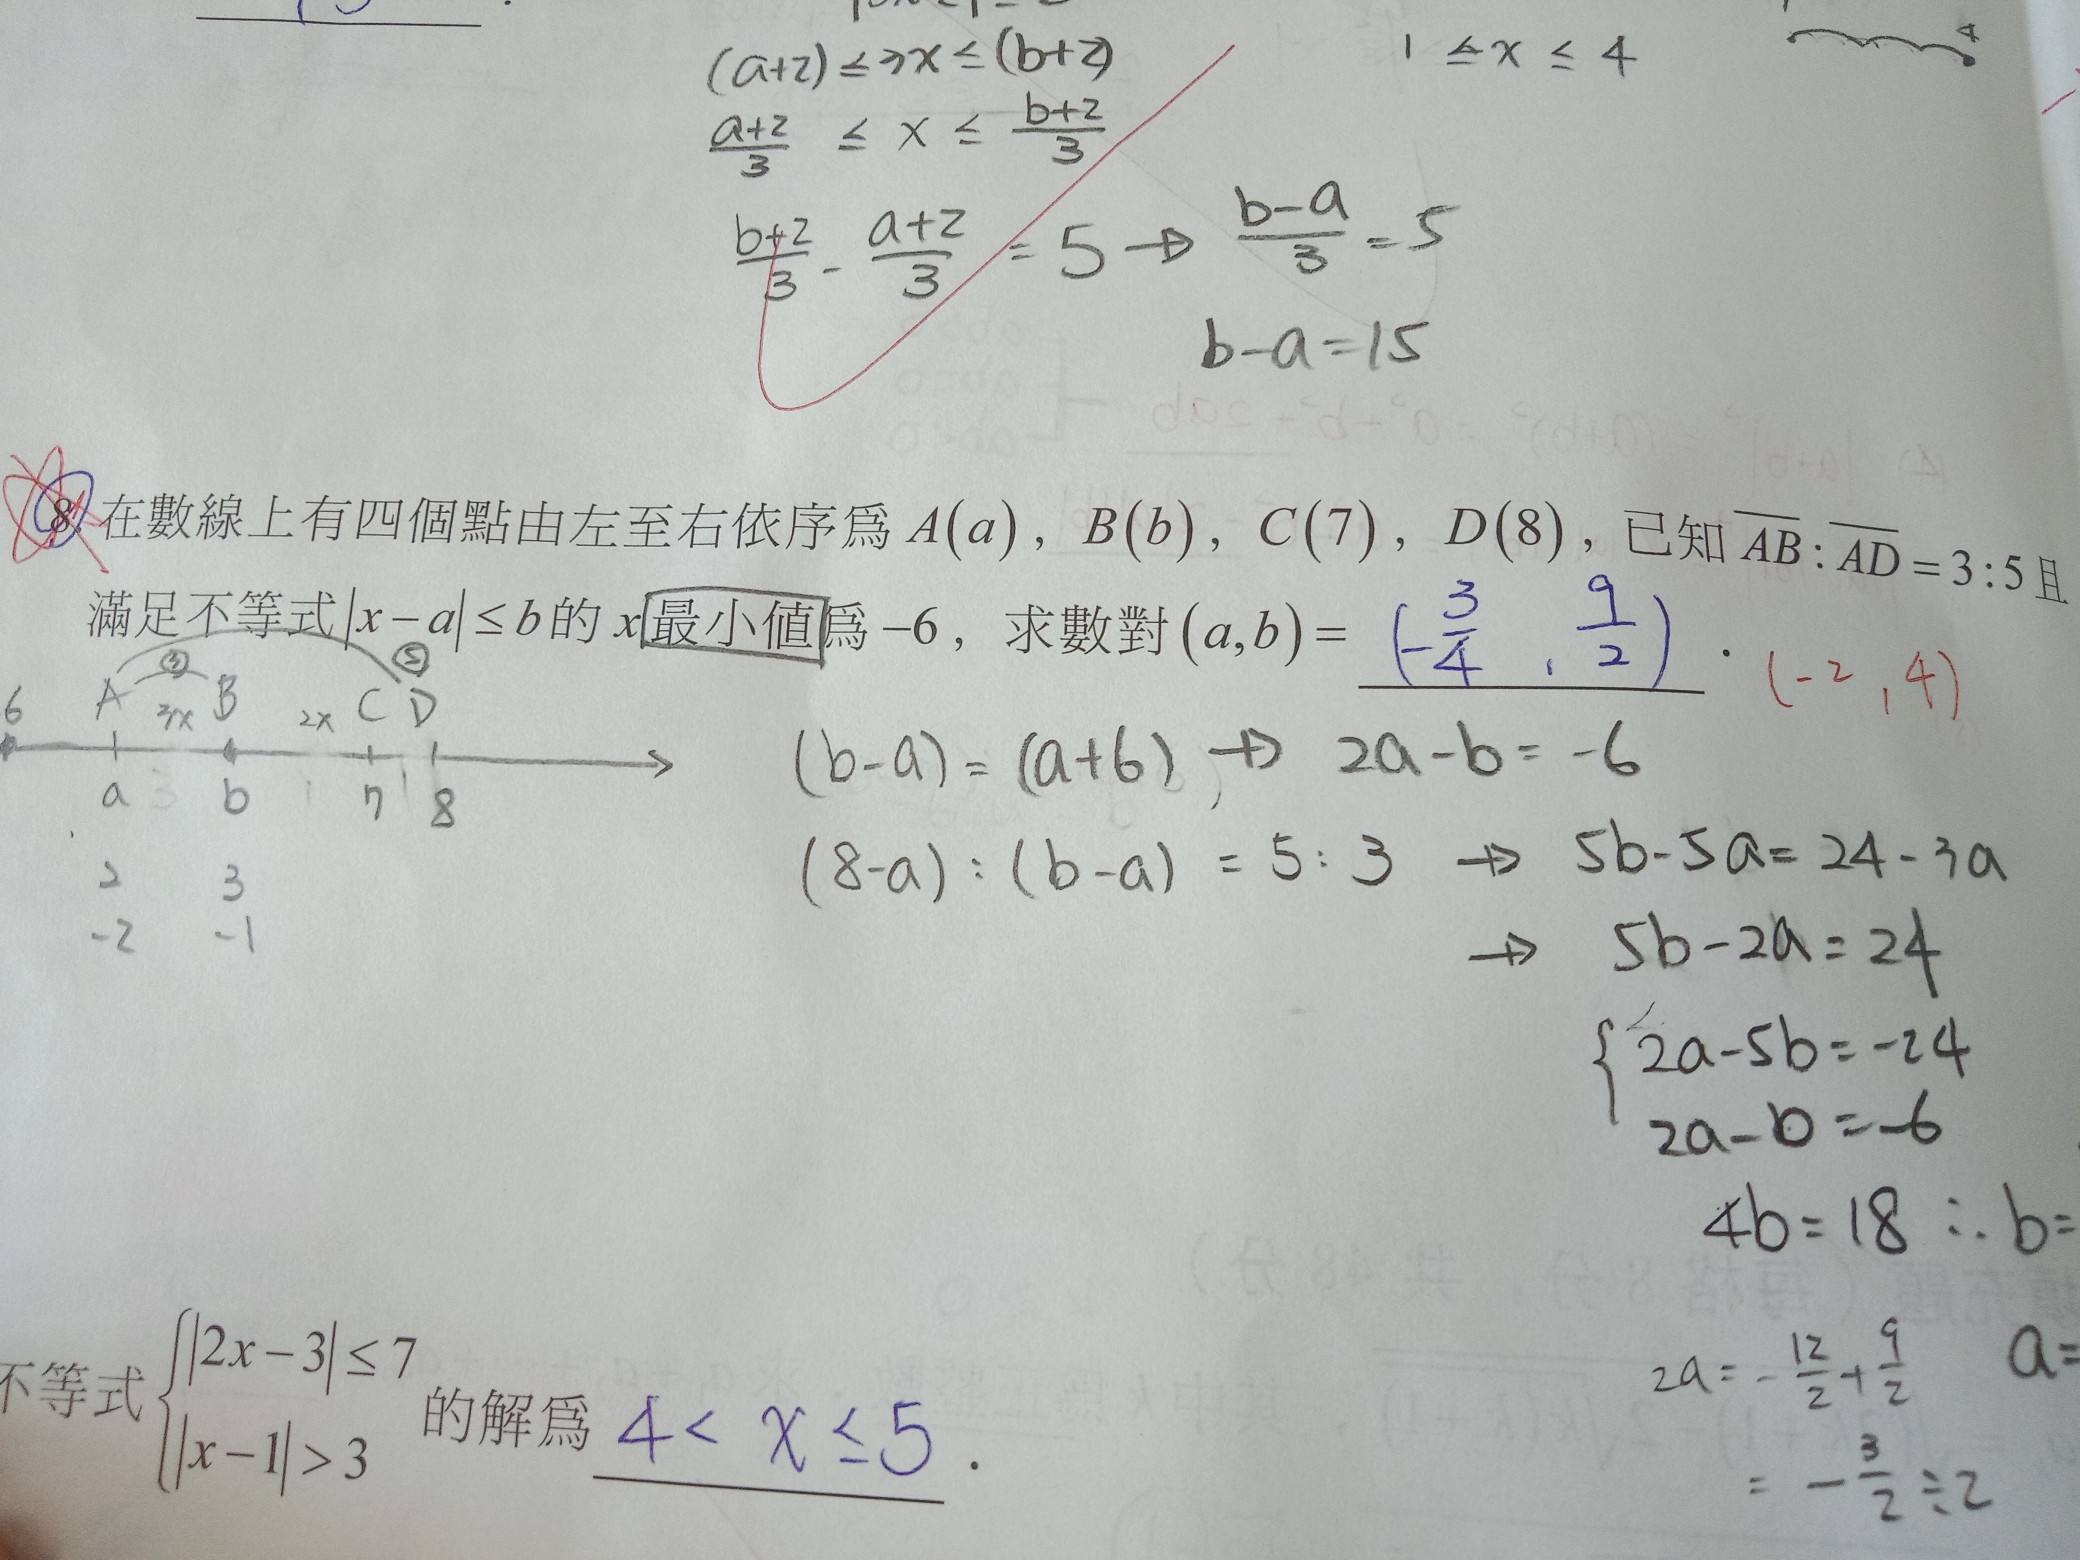 (a+2) ≤ 3x ≤ (b+2)
1 ≤ x ≤ 4
4
a+2/3 ≤ x ≤ b+2/3
b+2/3 - a+2/3 = 5 → b-a/3 = 5
b-a=15
8. 在數線上有四個點由左至右依序為 A(a), B(b), C(7), D(8), 已知 AB : AD = 3:5 且
滿足不等式 |x-a| ≤ b 的 x 最小值為 -6, 求數對 (a,b) = (-3/4, 9/2). (-2, 4)
3 5
6 A 3x B 2x C D
a 3 b 1 7 1 8
2 3
-2 -1
(b-a) = (a+6) → 2a-b = -6
(8-a) : (b-a) = 5 : 3 → 5b-5a = 24-3a
→ 5b-2a = 24
{ 2a-5b = -24
2a-b = -6
4b = 18 ∴ b=
2a = -12/2 + 9/2 a=
= -3/2 ÷ 2
不等式 { |2x-3| ≤ 7
|x-1| > 3 的解為 4 < x ≤ 5 .